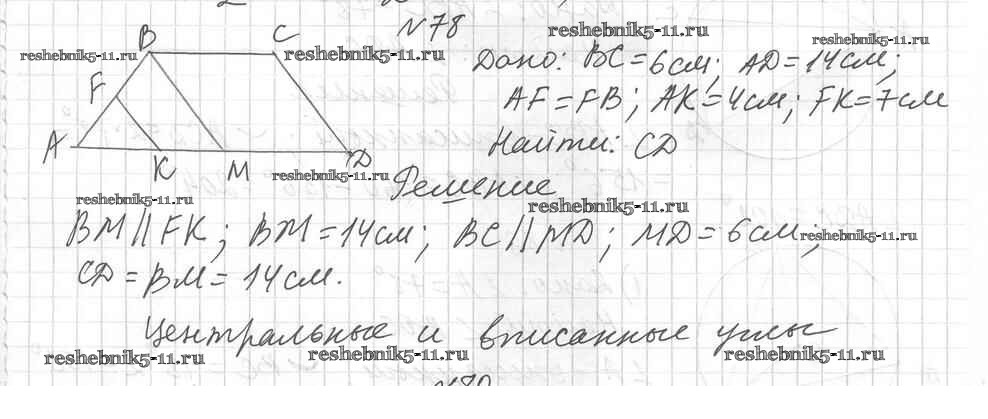 N78
B C
F
A K M D
Дано: BC = 6 см; AD = 14 см;
AF = FB; AK = 4 см; FK = 7 см
Найти: CD
Решение
BM || FK; BM = 14 см; BC || MD; MD = 6 см;
CD = BM = 14 см.
Центральные и вписанные углы
reshebnik5-11.ru
reshebnik5-11.ru
reshebnik5-11.ru
reshebnik5-11.ru
reshebnik5-11.ru
reshebnik5-11.ru
reshebnik5-11.ru
reshebnik5-11.ru
reshebnik5-11.ru
reshebnik5-11.ru
reshebnik5-11.ru